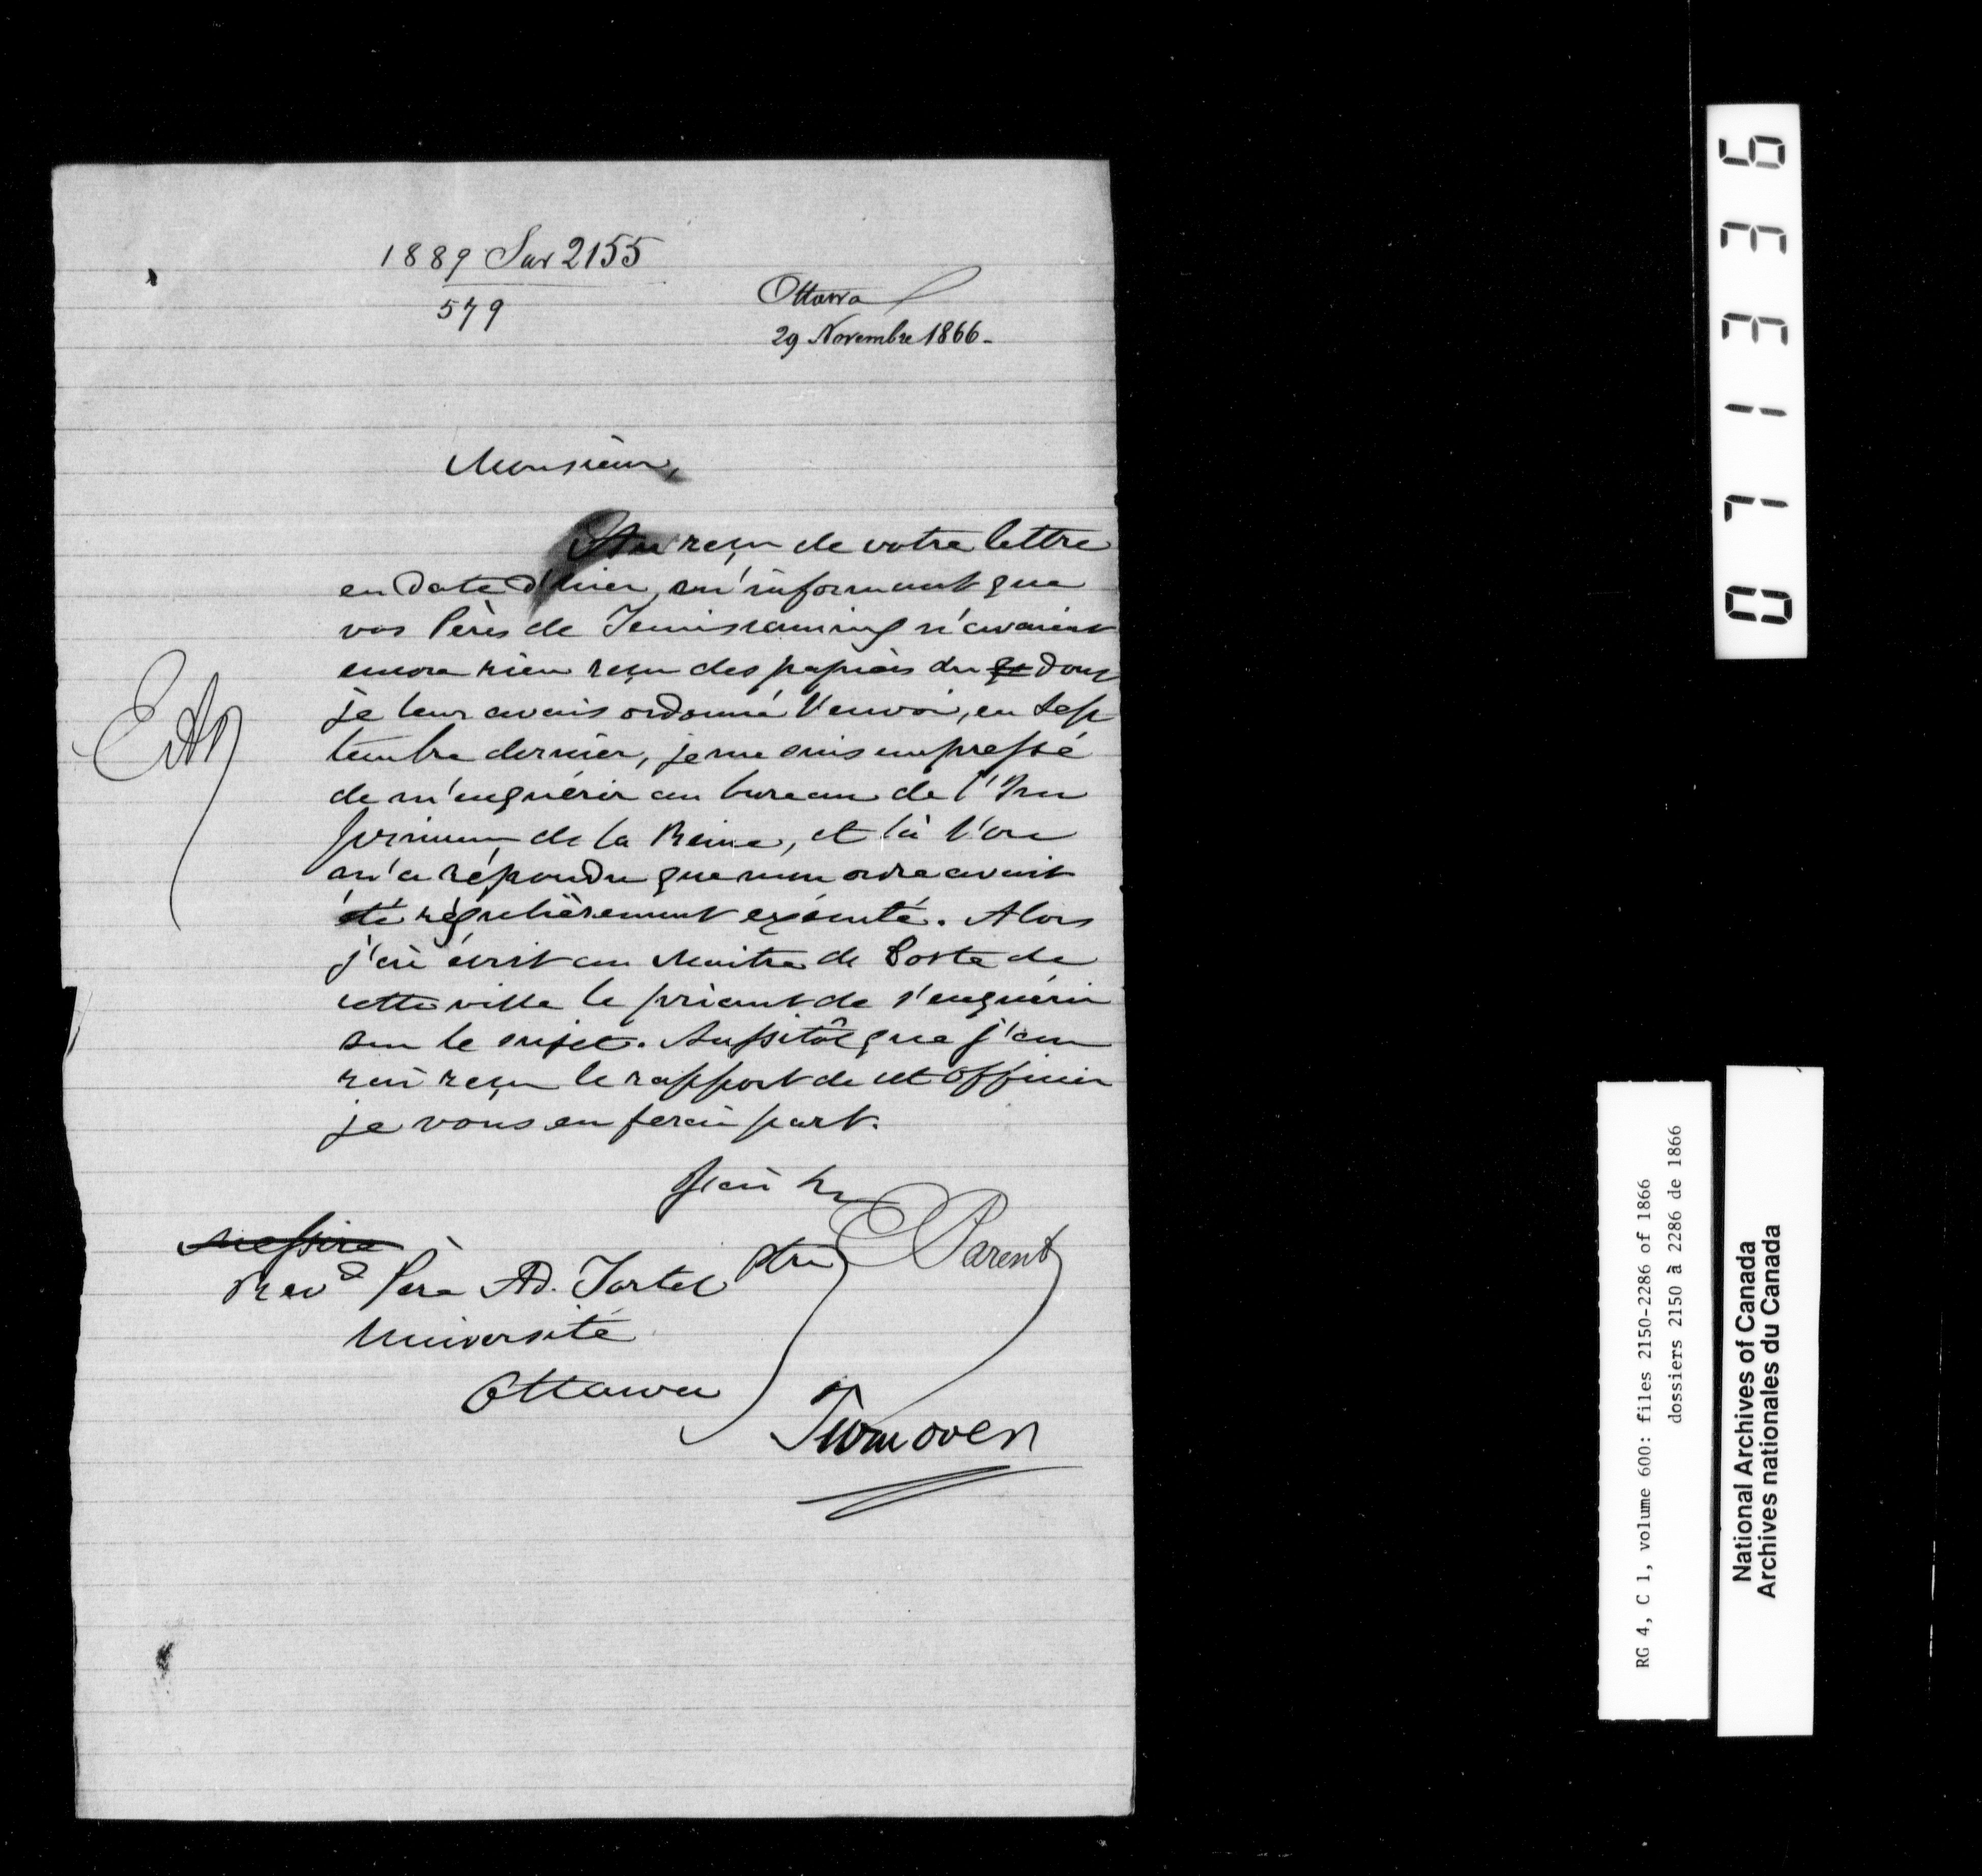 1889 Sur 2155
579
Ottawa
29 Novembre 1866.
Monsieur,
Au reçu de votre lettre
en date d'hier, m'informant que
vos Pères de Temiscaming n'avaient
encore rien reçu des papiers du dont
je leur avais ordonné l'envoi, en Sep
tembre dernier, je me suis empressé
de m'enquérir au bureau de l'Im
primeur de la Reine, et là l'on
m'a répondu que mon ordre avait
été régulièrement exécuté. Alors
j'ai écrit au Maitre de Poste de
cette ville le priant de s'enquérir
sur le sujet. Aussitôt que j'au
rai reçu le rapport de cet Officier
je vous en ferai part.
J'ai
E Parent
Messire
Revd Père Ad. Tortel Ptre
Université
Ottawa
Turnover
071336
RG 4, C 1, volume 600: files 2150-2286 of 1866
dossiers 2150 à 2286 de 1866
National Archives of Canada
Archives nationales du Canada